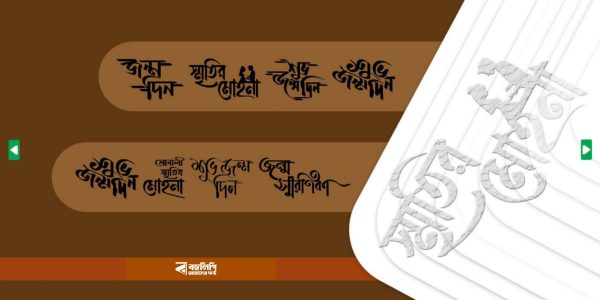 জন্ম
দিন
স্মৃতির
মোহনা
শুভ
জন্মদিন
শুভ
জন্মদিন
শুভ
জন্মদিন
সোনালী
স্মৃতির
মোহনা
শুভ জন্ম
দিন
জন্ম
স্মৃতির
মোহনা
বঙ্গলিপি